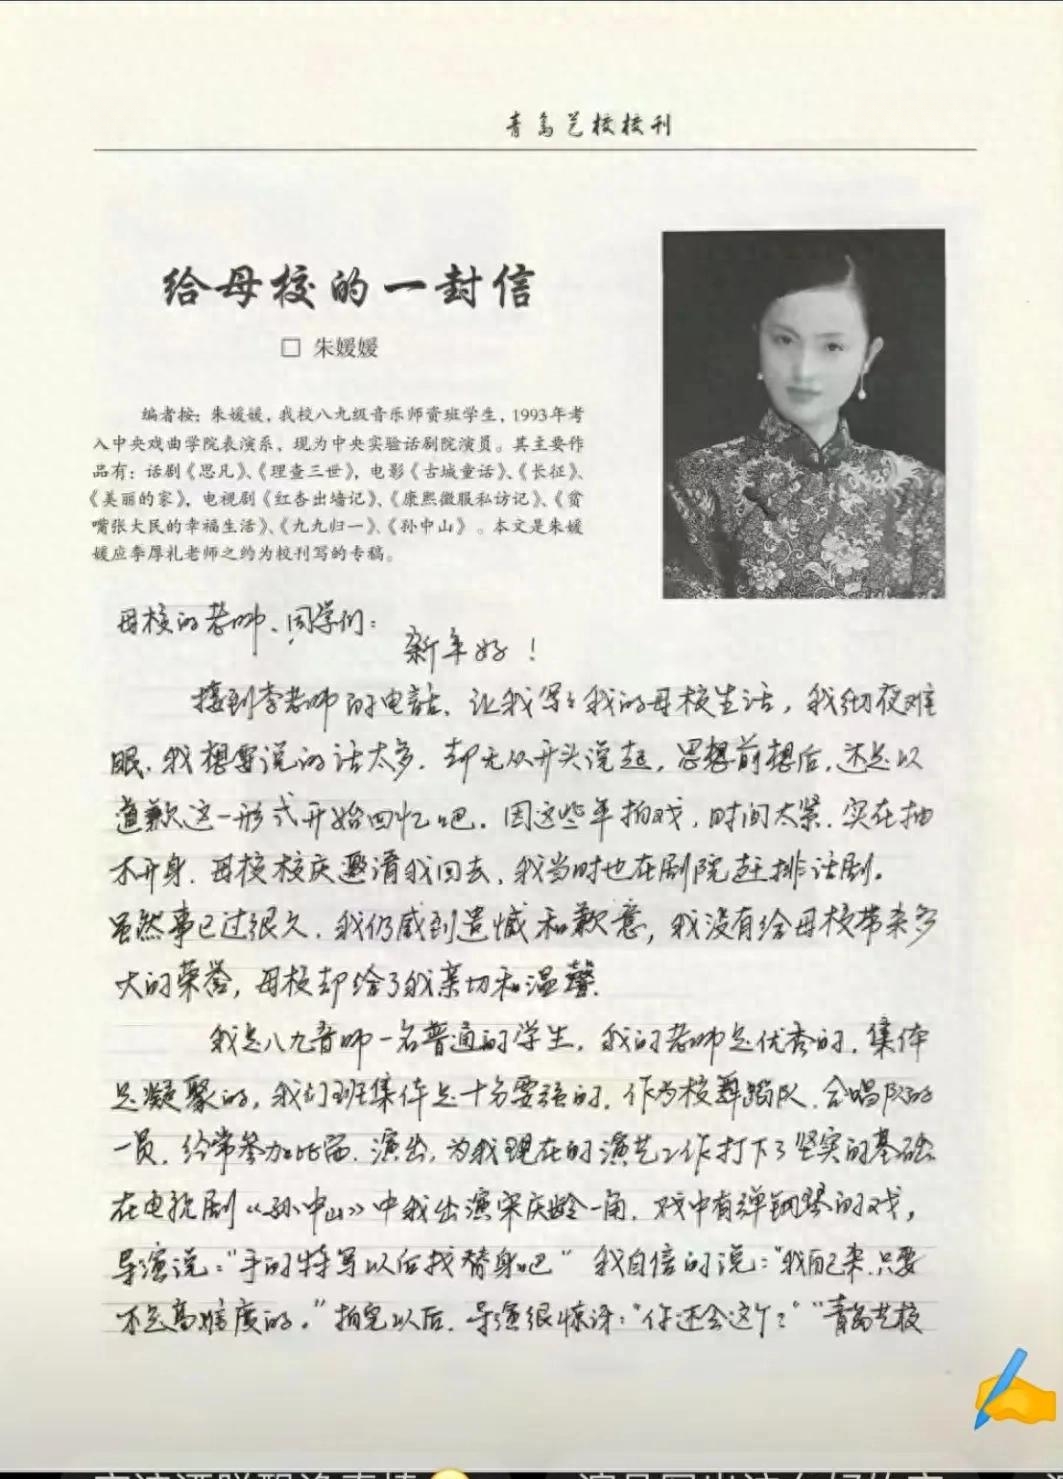 青岛艺校校刊
给母校的一封信
□ 朱媛媛
编者按：朱媛媛，我校八九级音乐师资班学生，1993年考
入中央戏曲学院表演系，现为中央实验话剧院演员。其主要作
品有：话剧《思凡》、《理查三世》，电影《古城童话》、《长征》、
《美丽的家》，电视剧《红杏出墙记》、《康熙微服私访记》、《贫
嘴张大民的幸福生活》、《九九归一》、《孙中山》。本文是朱媛
媛应李厚礼老师之约为校刊写的专稿。
母校的老师、同学们：
新年好！
接到李老师的电话、让我写写我的母校生活，我彻夜难
眠，我想要说的话太多，却无从开头说起，思想前想后，还是以
道歉这一形式开始回忆吧。因这些年拍戏，时间太紧，实在抽
不开身，母校校庆邀请我回去，我当时也在剧院赶排话剧。
虽然事已过很久，我仍感到遗憾和歉意，我没有给母校带来多
大的荣誉，母校却给了我亲切和温馨。
我是八九音师一名普通的学生，我的老师是优秀的，集体
是凝聚的，我们班集体是十分要强的，作为校舞蹈队、合唱队的
一员，经常参加比赛、演出，为我现在的演艺工作打下了坚实的基础
在电视剧《孙中山》中我出演宋庆龄一角，戏中有弹钢琴的戏，
导演说：“手的特写以后找替身吧” 我自信的说：“我自己来，只要
不是高难度的。”拍完以后，导演很惊讶：“你还会这个？”“青岛艺校